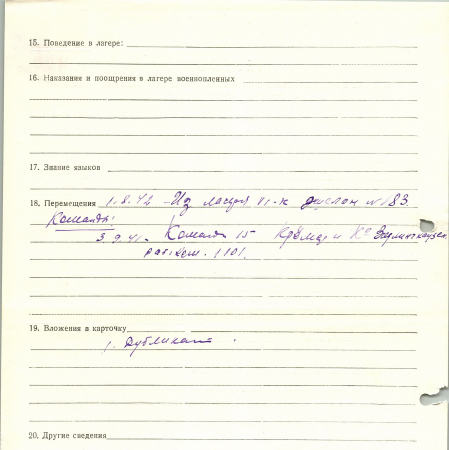 15. Поведение в лагере:
16. Наказания и поощрения в лагере военнопленных
17. Знание языков
18. Перемещения 1.8.42 - Из лагеря VI-K № 83
Команды:
3.9.41. Команда 15
1101.
19. Вложения в карточку
1. Дубликат
20. Другие сведения